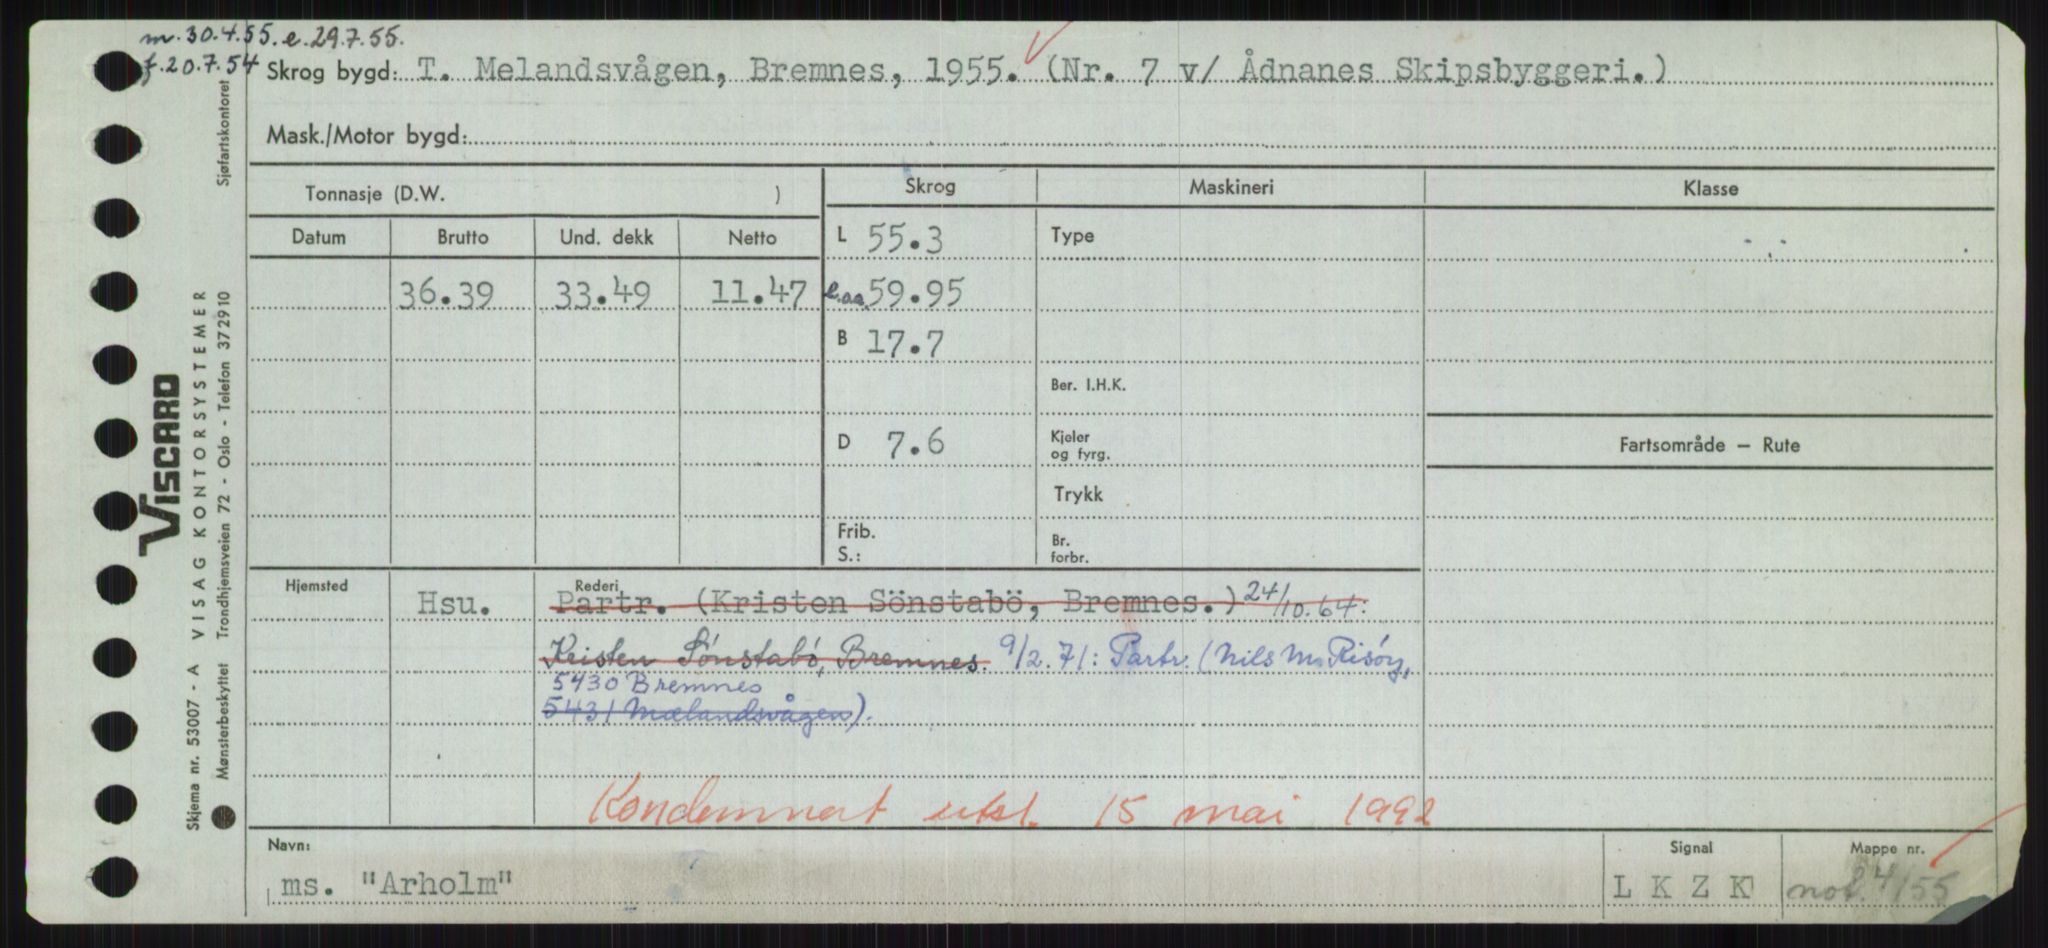 m. 30.4.55. e. 29.7.55.
f. 20.7.54
Skrog bygd: T. Melandsvågen, Bremnes, 1955. (Nr. 7 v/ Ådnanes Skipsbyggeri.)
Mask./Motor bygd:
Tonnasje (D.W. )
Skrog
Maskineri
Klasse
Datum Brutto Und. dekk Netto
L 55.3
Type
36.39 33.49 11.47
l.aa. 59.95
B 17.7
Ber. I.H.K.
D 7.6
Kjeler og fyrg.
Fartsområde — Rute
Trykk
Frib.
S.:
Br. forbr.
Hjemsted
Rederi
Hsu. Partr. (Kristen Sönstabö, Bremnes.) 24/10.64:
Kristen Sönstabö, Bremnes. 9/2.71: Partr. (Nils M. Risöy,
5430 Bremnes
5431 Mælandsvågen).
Kondemnert utsl. 15 mai 1992
Navn:
Signal
Mappe nr.
ms. "Arholm"
L K Z K
/55
Sjøfartskontoret
VISCARD
VISAG KONTORSYSTEMER
Skjema nr. 53007 - A
Mønsterbeskyttet Trondhjemsveien 72 - Oslo - Telefon 372910